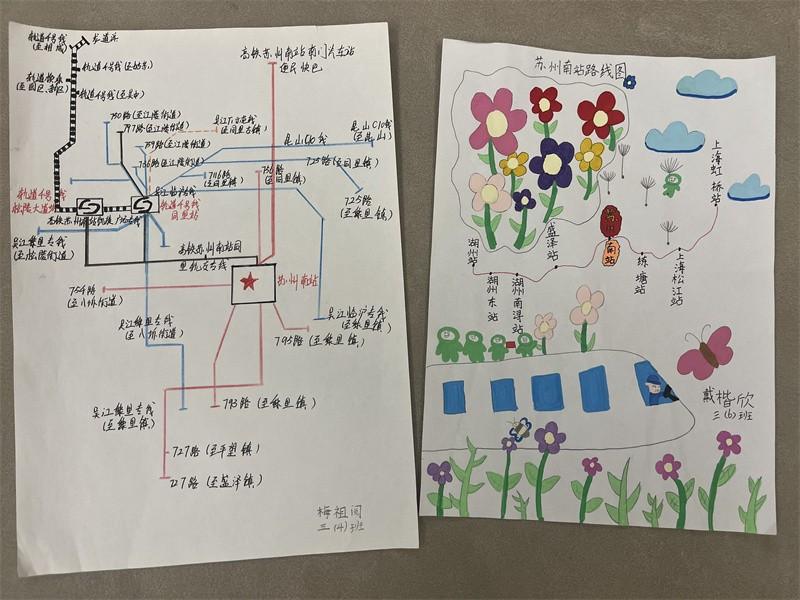 轨道4号线
(至相城)
龙道浜
轨道4号线(至姑苏)
轨道4号线(至吴中)
高铁苏州南站南门头车站
便民快巴
750路(至江陵街道)
797路(至江陵街道)
739路(至江陵街道)
736路(至江陵街道)
(至同里古镇)
昆山C10路
昆山C10路
(至昆山)
725路(至同里镇)
725路
(至黎里镇)
716路
(至同里镇)
756路
(至同里镇)
轨道4号线
松陵大道站
轨道4号线
同里站
吴江黎里专线
(至松陵街道)
高铁苏州南站同
里轨交专线
苏州南站
754路
(至八坼街道)
吴江黎里专线
(至八坼街道)
吴江临沪专线
(至黎里镇)
795路(至黎里镇)
吴江黎里专线
(至黎里镇)
793路(至黎里镇)
727路(至平望镇)
727路(至盛泽镇)
梅祖闻
三(4)班
苏州南站路线图
上海虹桥站
湖州站
盛泽站
苏州南站
练塘站
上海松江站
湖州东站
湖州南浔站
戴楷欣
三(6)班